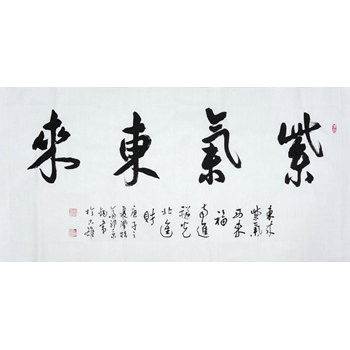 紫氣東來
東來
紫氣
西來
福
南進
祥光
北進
財
庚子之